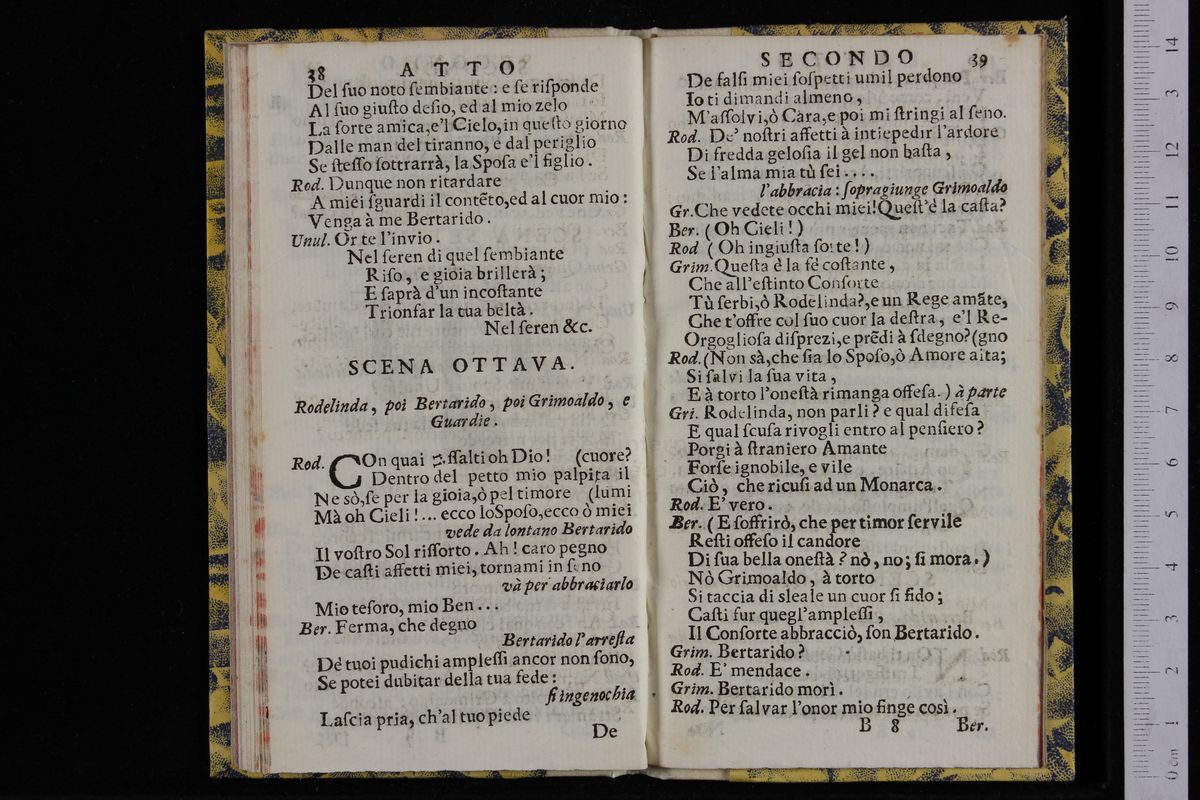 38 ATTO
Del ſuo noto ſembiante : e ſe riſponde
Al ſuo giuſto deſio, ed al mio zelo
La ſorte amica,e'l Cielo,in queſto giorno
Dalle man del tiranno, e dal periglio
Se ſteſſo ſottrarrà, la Spoſa e'l figlio.
Rod. Dunque non ritardare
A miei ſguardi il contẽto,ed al cuor mio :
Venga à me Bertarido.
Unul. Or te l'invio.
Nel ſeren di quel ſembiante
Riſo, e gioia brillerà ;
E ſaprà d'un incoſtante
Trionfar la tua beltà.
Nel ſeren &c.
SCENA OTTAVA.
Rodelinda, poi Bertarido, poi Grimoaldo, e
Guardie.
Rod. COn quai aſſalti oh Dio! (cuore?
Dentro del petto mio palpita il
Ne sò,ſe per la gioia,ò pel timore (lumi
Mà oh Cieli!... ecco loSpoſo,ecco ò miei
vede da lontano Bertarido
Il voſtro Sol riſſorto. Ah! caro pegno
De caſti affetti miei, tornami in ſeno
và per abbraciarlo
Mio teſoro, mio Ben...
Ber. Ferma, che degno
Bertarido l'arreſta
De' tuoi pudichi ampleſſi ancor non ſono,
Se potei dubitar della tua fede :
ſi ingenochia
Laſcia pria, ch'al tuo piede
De
SECONDO 39
De falſi miei ſoſpetti umil perdono
Io ti dimandi almeno,
M'aſſolvi,ò Cara,e poi mi ſtringi al ſeno.
Rod. De' noſtri affetti à intiepedir l'ardore
Di fredda geloſia il gel non baſta,
Se l'alma mia tù ſei....
l'abbracia : ſopragiunge Grimoaldo
Gr.Che vedete occhi miei!Queſt'è la caſta?
Ber. (Oh Cieli!)
Rod (Oh ingiuſta ſorte!)
Grim.Queſta è la fé coſtante,
Che all'eſtinto Conſorte
Tù ſerbi,ò Rodelinda?,e un Rege amãte,
Che t'offre col ſuo cuor la deſtra, e'l Re-
Orgoglioſa diſprezi,e prẽdi à ſdegno?(gno
Rod.(Non sà,che ſia lo Spoſo,ò Amore aita;
Si ſalvi la ſua vita,
E à torto l'oneſtà rimanga offeſa.) à parte
Gri. Rodelinda, non parli? e qual difeſa
E qual ſcuſa rivogli entro al penſiero?
Porgi à ſtraniero Amante
Forſe ignobile, e vile
Ciò, che ricuſi ad un Monarca.
Rod. E' vero.
Ber. (E ſoffrirò, che per timor ſervile
Reſti offeſo il candore
Di ſua bella oneſtà? nò, no; ſi mora.)
Nò Grimoaldo, à torto
Si taccia di sleale un cuor ſi fido;
Caſti fur quegl'ampleſſi,
Il Conſorte abbracciò, ſon Bertarido.
Grim. Bertarido?
Rod. E' mendace.
Grim. Bertarido morì.
Rod. Per ſalvar l'onor mio finge così.
B 8 Ber.
0 cm 1 2 3 4 5 6 7 8 9 10 11 12 3 14